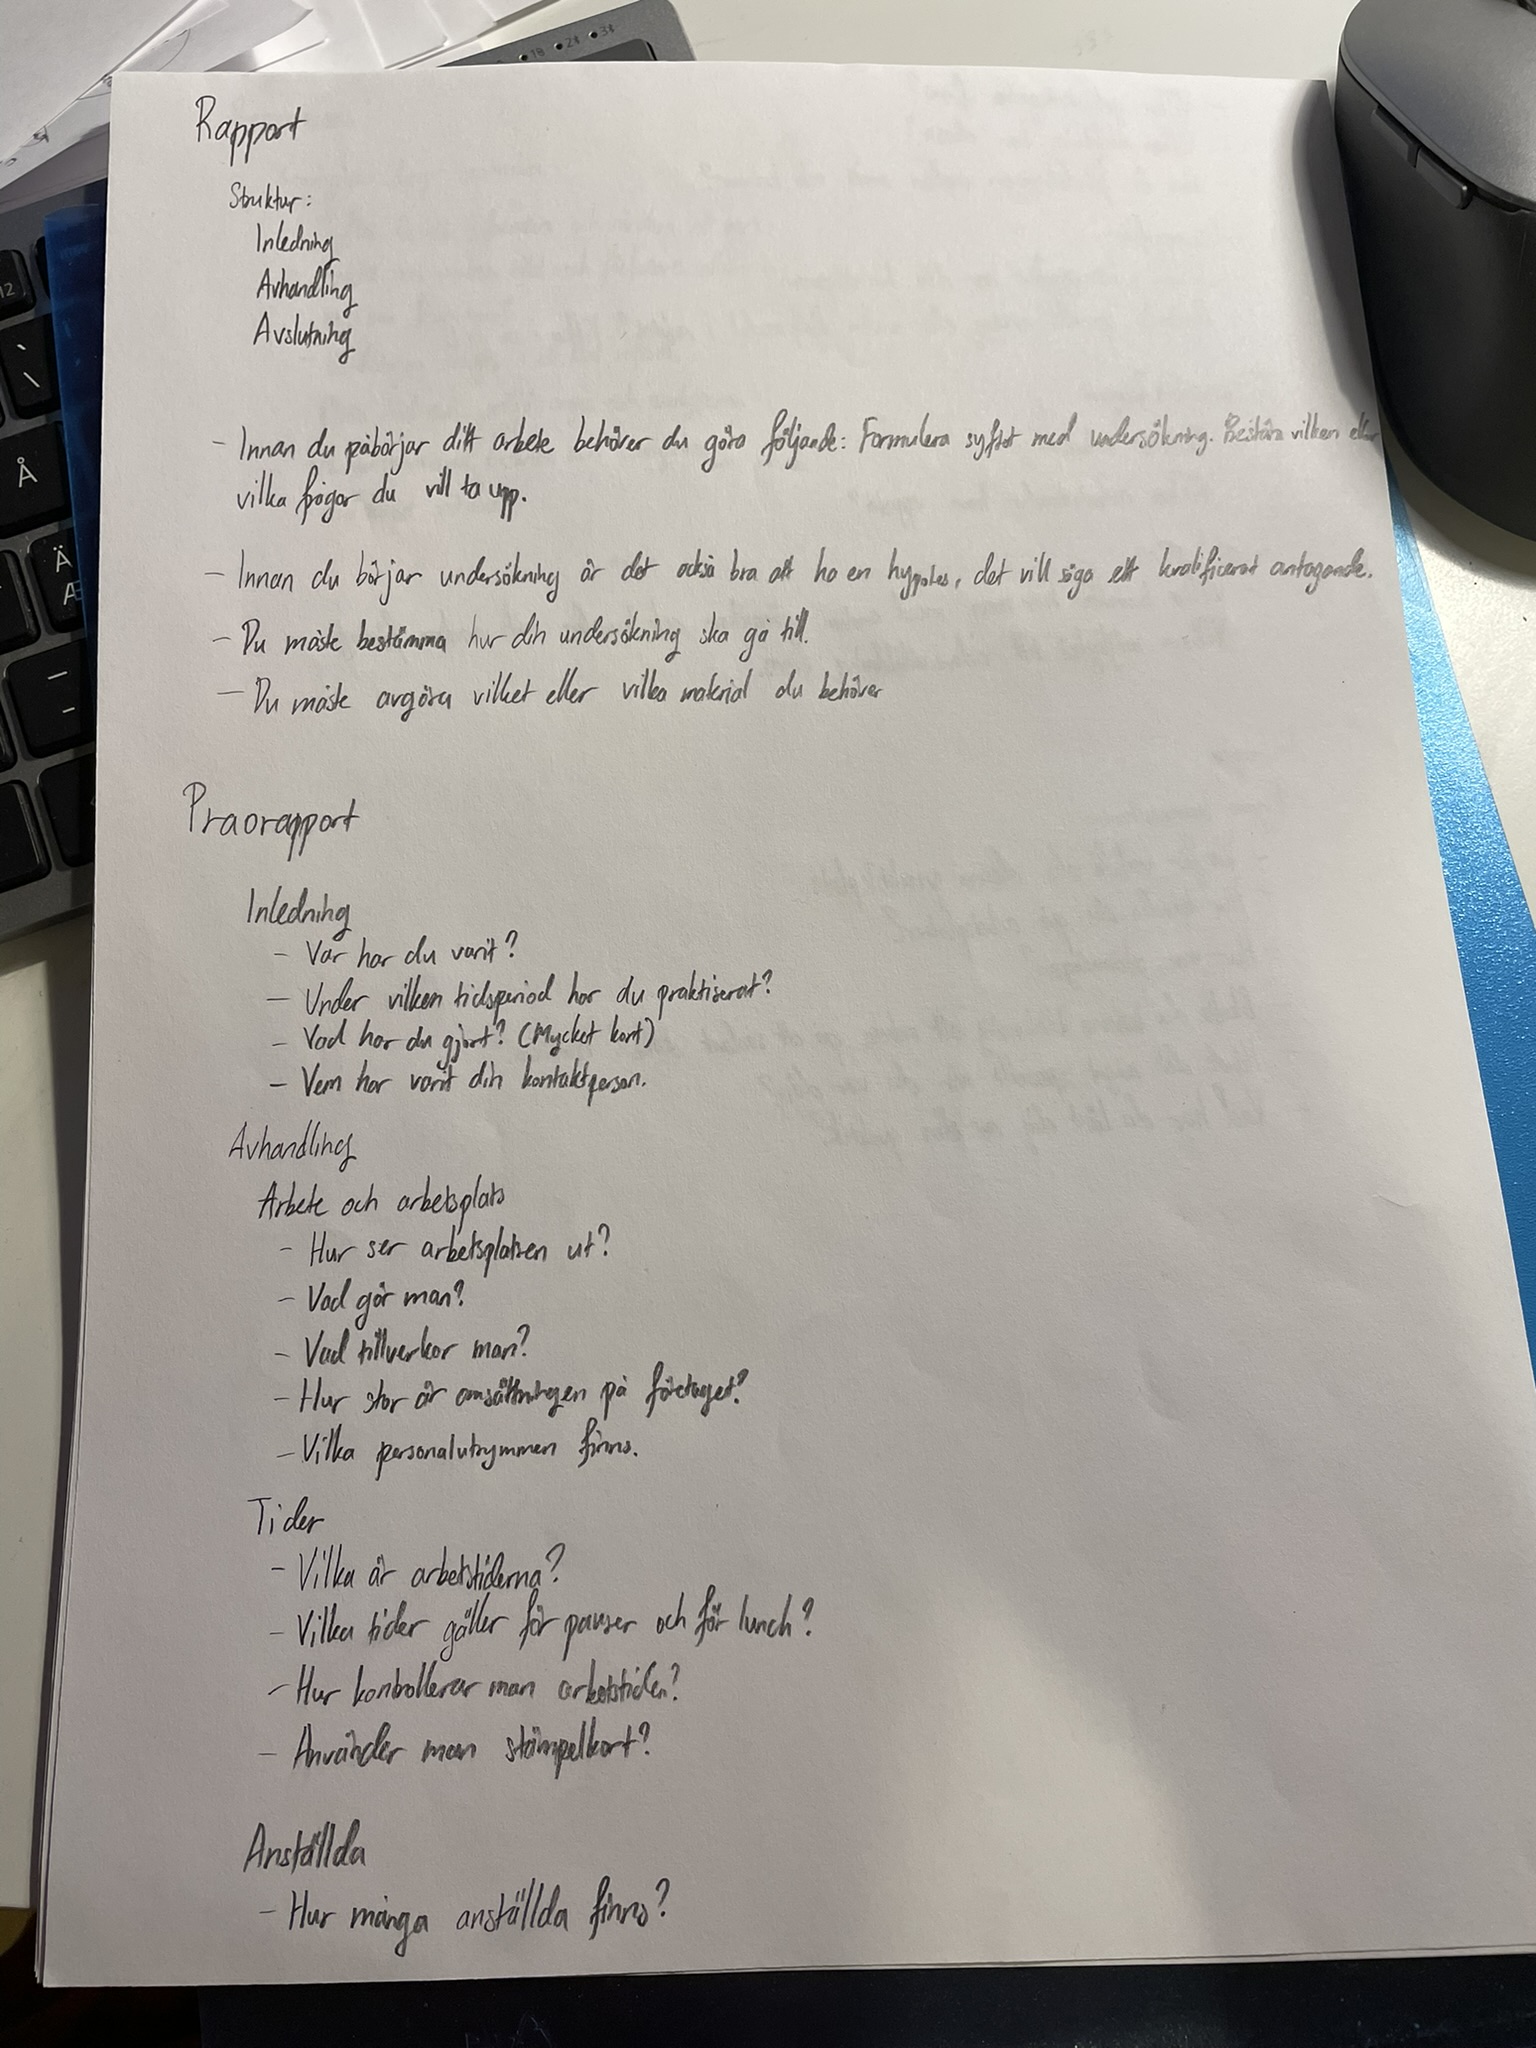 Rapport
Struktur:
Inledning
Avhandling
Avslutning
- Innan du påbörjar ditt arbete behöver du göra följande: Formulera syftet med undersökning. Bestäm vilken eller
vilka frågor du vill ta upp.
- Innan du börjar undersökning är det också bra att ha en hypotes, det vill säga ett kvalificerat antagande.
- Du måste bestämma hur din undersökning ska gå till.
- Du måste avgöra vilket eller vilka material du behöver
Praorapport
Inledning
- Var har du varit?
- Under vilken tidsperiod har du praktiserat?
- Vad har du gjort? (Mycket kort)
- Vem har varit din kontaktperson.
Avhandling
Arbete och arbetsplats
- Hur ser arbetsplatsen ut?
- Vad gör man?
- Vad tillverkar man?
- Hur stor är omsättningen på företaget?
- Vilka personalutrymmen finns.
Tider
- Vilka är arbetstiderna?
- Vilka tider gäller för pauser och för lunch?
- Hur kontrollerar man arbetstiden?
- Använder man stämpelkort?
Anställda
- Hur många anställda finns?